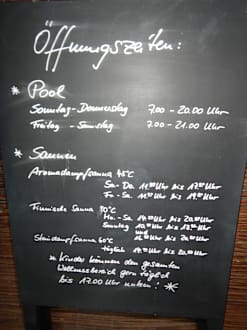 Öffnungszeiten:
* Pool
Sonntag - Donnerstag 7.00 - 20.00 Uhr
Freitag - Samstag 7.00 - 21.00 Uhr
* Saunen
Aromadampfsauna 45°C
Sa - Do. bis Uhr
Fr - Sa. bis Uhr
Finnische Sauna 90°C
Mo - Sa 14.00 Uhr bis Uhr
Sonntag Uhr bis Uhr
und
Uhr bis Uhr
Steindampfsauna 60°C
täglich 14.00 Uhr bis 20.00 Uhr
* Kinder können den gesamten
Wellnessbereich gern täglich
bis 17.00 Uhr nutzen! *